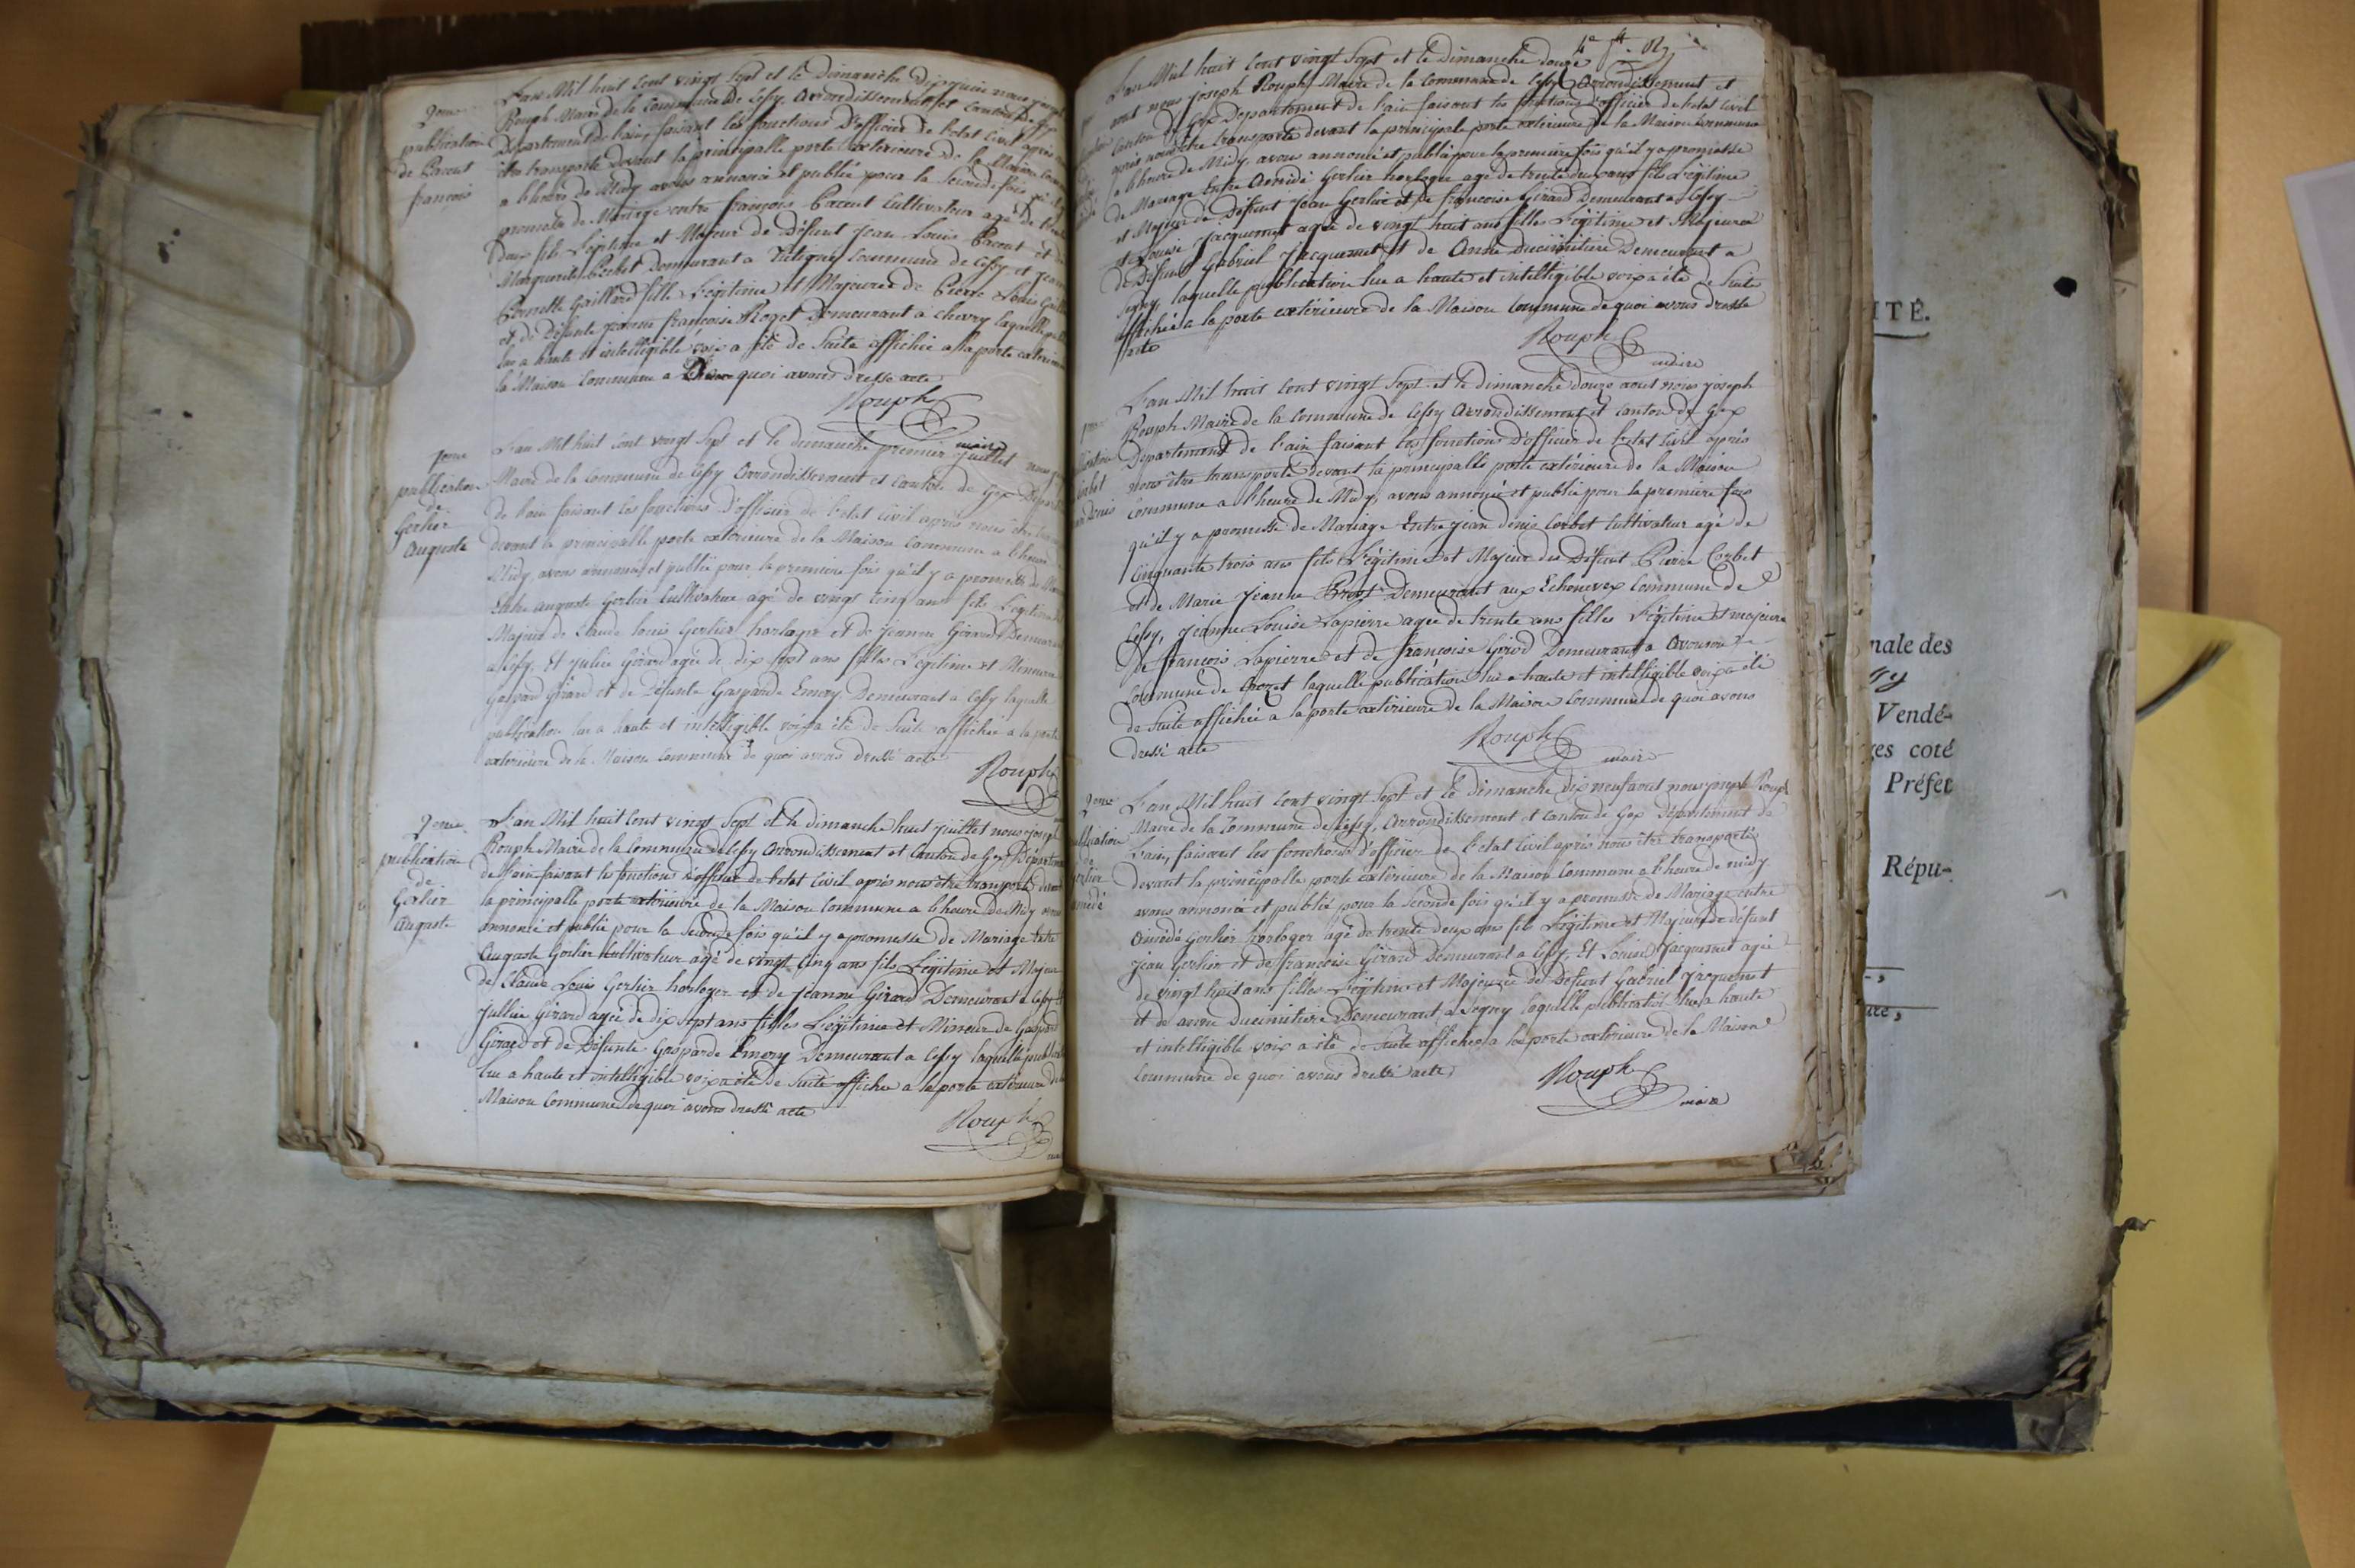 2eme
publication
de Pacout
françois
L'an Mil huit Cent vingt Sept et le Dimanche Dix juin nous joseph
Rouph Maire de la Commune de Cessy, Arrondissement et Canton de Gex
Département de l'ain, faisant les fonctions D'officier de l'etat Civil après
être transporté devant la principalle porte Extérieure de la Maison
a l'heure de Midy avons annoncé et publié pour la Seconde fois
promesse de Mariage entre françois Pacout Cultivateur agé de
Deux fils Légitime et Majeur de Défunt Jean Louis Pacout et
Marguerite Demeurant a Commune de Cessy et
Pernette Gaillard fille Légitime et Majeure de Pierre Louis
et de Défunte jeanne françoise Roget Demeurant a Chevry laquelle
lue a haute et intelligible voix a été de Suite affichée a la porte
la Maison Commune de quoi avons dressé acte
Rouph
maire
1ere
publication
de
Gerlier
Auguste
L'an Mil huit Cent vingt Sept et le dimanche premier juillet
Maire de la Commune de Cessy Arrondissement et Canton de Gex
de l'ain faisant les fonctions d'officier de l'etat Civil après nous être
devant la principalle porte extérieure de la Maison Commune a l'heure
Midy, avons annoncé et publié pour la premiere fois qu'il y a promesse de
Entre Auguste Gerlier Cultivateur agé de vingt Cinq ans fils Légitime
Majeur de Claude Louis Gerlier horloger et de jeanne Girard Demeurant
a Cessy. Et Julie Girard agée de dix Sept ans fille Légitime et Mineure
Gaspard Girard et de Défunte Gasparde Emery Demeurant a Cessy laquelle
publication lue a haute et intelligible voix a été de Suite affichée a la porte
extérieure de la Maison Commune de quoi avons dressé acte
Rouph
2eme
publication
de
Gerlier
Auguste
L'an Mil huit Cent vingt Sept et le dimanche huit juillet nous joseph
Rouph Maire de la Commune de Cessy Arrondissement et Canton de Gex
de l'ain faisant les fonctions D'officier de l'etat Civil après nous être transporté devant
la principalle porte extérieure de la Maison Commune a l'heure De Midy avons
annoncé et publié pour la Seconde fois qu'il y a promesse de Mariage Entre
Auguste Gerlier Cultivateur agé de vingt Cinq ans fils Légitime et Majeur
de Claude Louis Gerlier horloger et de jeanne Girard Demeurant a Cessy Et
Jullie Girard agée de dix sept ans filles Légitime et Mineur de Gaspard
Girard et de Défunte Gasparde Emery Demeurant a Cessy laquelle
lue a haute et intelligible voix a été de Suite affichée a la porte extérieure de la
Maison Commune de quoi avons dressé acte
Rouph
L'an Mil huit Cent vingt Sept et le dimanche douze
aout nous joseph Rouph Maire de la Commune de Cessy Arrondissement et
Canton de Gex Département de l'ain faisant les fonctions d'officier de l'etat Civil
après nous être transporté devant la principale porte extérieure de la Maison Commune
a l'heure de Midy, avons annoncé et publié pour la première fois qu'il y a promesse
de Mariage Entre Amédé Gerlier horloger agé de trente deux ans fils Légitime
et Majeur de Défunt Jean Gerlier et de françoise Girard Demeurant a Cessy
et Louise Jacquemet agée de vingt huit ans filles Légitime et Majeure
de Défunt Gabriel Jacquemet et de Anne Ducimitiere Demeurant a
Segny laquelle publication lue a haute et intelligible voix a été de Suite
affichée a la porte extérieure de la Maison Commune de quoi avons dressé
acte
Rouph
maire
L'an Mil huit Cent vingt Sept et le dimanche douze aout nous joseph
Rouph Maire de la Commune de Cessy Arrondissement et Canton de Gex
Département de l'ain faisant les fonctions D'officier de l'etat Civil après
nous être transporté devant la principalle porte extérieure de la Maison
Commune a l'heure de Midy, avons annoncé et publié pour la premiere fois
qu'il y a promesse de Mariage Entre jean denis Corbet Cultivateur agé de
Cinquante trois ans fils Légitime et Majeur du Défunt Pierre Corbet
et de Marie Jeanne Demeurant aux Echenevex Commune de
Cessy, jeanne Louise Lapierre agée de trente ans filles Légitime et majeure
de françois Lapierre et de françoise Girod Demeurant a Avouzon
Commune de Crozet laquelle publication lue a haute et intelligible voix a été
de Suite affichée a la porte extérieure de la Maison Commune de quoi avons
dressé acte
Rouph
maire
2eme
L'an Mil huit Cent vingt Sept et le dimanche dix neuf aout nous joseph Rouph
Maire de la Commune de Cessy, Arrondissement et canton de Gex Département de
l'ain, faisant les fonctions d'officier de l'etat Civil après nous être transporté
devant la principalle porte extérieure de la Maison Commune a l'heure de midy
avons annoncé et publié pour la Seconde fois qu'il y a promesse de Mariage entre
Amédé Gerlier horloger agé de trente deux ans fils Légitime et Majeur de défunt
Jean Gerlier et de françoise Girard Demeurant a Cessy, Et Louise Jacquemet agée
de vingt huit ans filles Légitime et Majeure de Défunt Gabriel Jacquemet
et de anne Ducimitiere Demeurant a Segny laquelle publication lue a haute
et intelligible voix a été de Suite affichée a la porte extérieure de la Maison
Commune de quoi avons dressé acte
Rouph
maire
ITÉ.
nale des
Vendé-
ges coté
Préfet
Répu-